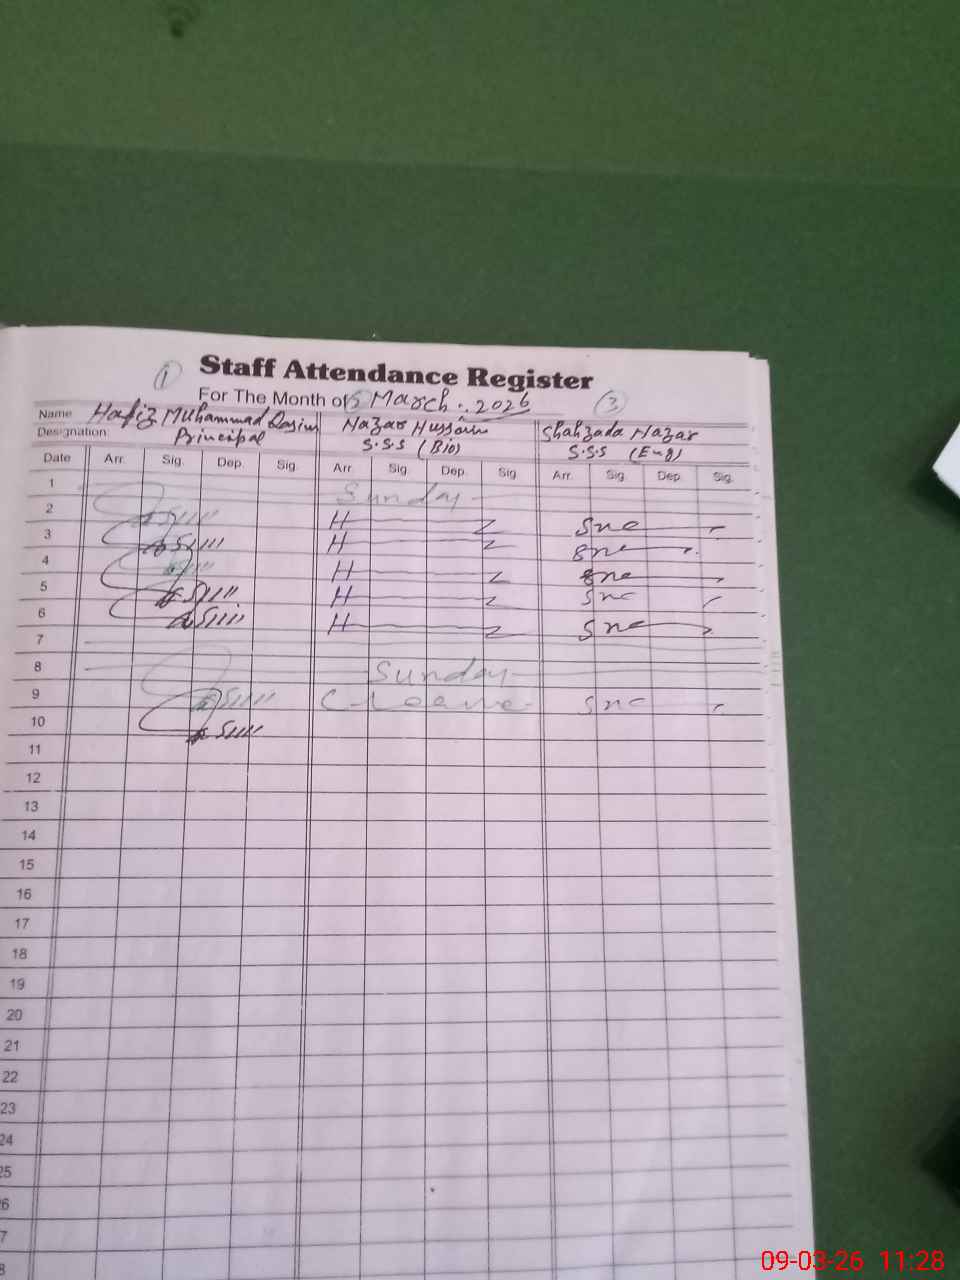 ① ③
Staff Attendance Register
For The Month of March. 2026
Name Hafiz Muhammad Qasim Nazar Hussain Shahzada Nazar
Designation: Principal S.S.S (Bio) S.S.S (Eng)
Date Arr. Sig. Dep. Sig. Arr. Sig. Dep. Sig. Arr. Sig. Dep. Sig.
1 Sunday
2 H
3 H
4 H
5 H
6 H
7
8 Sunday
9 C leave
10
11
12
13
14
15
16
17
18
19
20
21
22
23
24
25
6
7
8
09-03-26 11:28